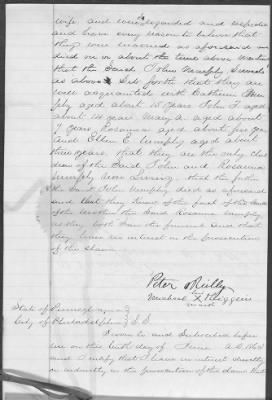 wife and were regarded and respected
and have every reason to believe that
they were married as aforesaid and
died on or about the time above mentioned
that the said John Murphy Served
as above Set forth that they are
well acquainted with Catherine Mur
phy aged about 15 years John F aged
about 12 years Mary A. aged about
7 years Rosanna aged about five years
and Ellen C Murphy aged about
three years, that they are the only chil
dren of the said John and Rosanna
Murphy Now Living, that the father
the said John Murphy died as aforesaid
and that they know of the fact of the death
of the Mother the said Rosanna Murphy
as they both saw the funeral and that
they have no interest in the prosecution
of this claim
Peter Reilly
his
Michael X Higgins
mark
State of Pennsylvania
City of Philadelphia } S.S.
Sworn to and Subscribed before
me on this day of June A.D. 186
and I certify that I have no interest directly
or indirectly in the prosecution of this claim that